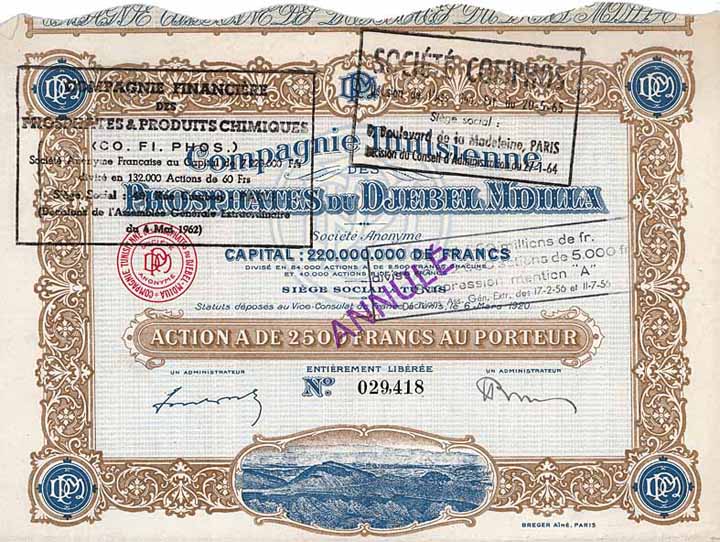 COMPAGNIE FINANCIÈRE
DES
PHOSPHATES & PRODUITS CHIMIQUES
(CO. FI. PHOS.)
Société Anonyme Française au Capital de 7.920.000 Frs
divisé en 132.000 Actions de 60 Frs
Siège Social :
(Décision de l'Assemblée Générale Extraordinaire
du 4 Mai 1962)
SOCIÉTÉ COFIPHOS
Décision de l'Ass. Gén. Ext. du 20-5-65
Siège social :
Boulevard de la Madeleine, PARIS
Décision du Conseil d'Administration du 27-1-64
Compagnie Tunisienne
DES
PHOSPHATES DU DJEBEL MDILLA
Société Anonyme
CAPITAL : 220.000.000 DE FRANCS
DIVISÉ EN 84.000 ACTIONS A DE 2500 FRANCS CHACUNE
ET 40.000 ACTIONS
SIÈGE SOCIAL : TUNIS
Statuts déposés au Vice-Consulat de France le 6 Mars 1920
millions de fr.
actions de 5.000 fr
suppression mention "A"
Ass. Gén. Extr. des 17-2-56 et 11-7-56
ANNULÉ
COMPAGNIE TUNISIENNE DES PHOSPHATES DU DJEBEL-MDILLA
SOCIÉTÉ ANONYME
ACTION A DE 2500 FRANCS AU PORTEUR
UN ADMINISTRATEUR ENTIÈREMENT LIBÉRÉE UN ADMINISTRATEUR
No. 029,418
BREGER AÎNÉ, PARIS